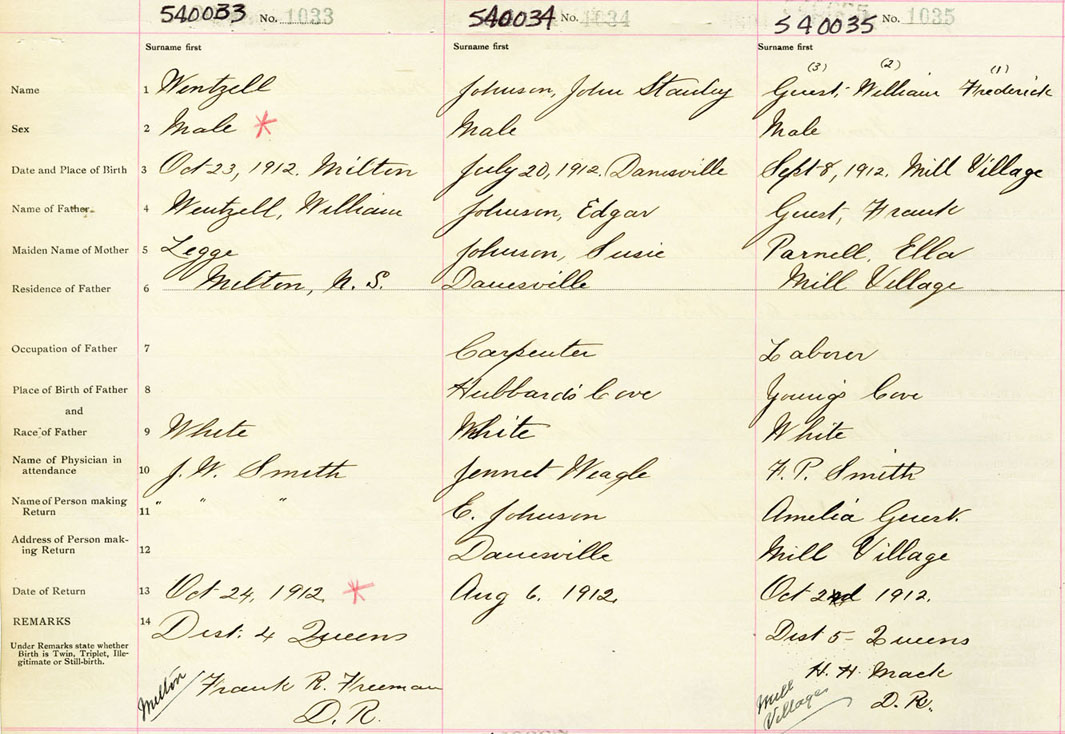 540033 No. 1033 540034 No. 1034 540035 No. 1035
Surname first Surname first Surname first
(3) (2) (1)
Name 1 Wentzell Johnson, John Stanley Guest, William Frederick
Sex 2 Male * Male Male
Date and Place of Birth 3 Oct 23, 1912. Milton July 20, 1912. Danesville Sept 8, 1912. Mill Village
Name of Father 4 Wentzell, William Johnson, Edgar Guest, Frank
Maiden Name of Mother 5 Legge Johnson, Susie Parnell, Ella
Residence of Father 6 Milton, N. S. Danesville Mill Village
Occupation of Father 7 Carpenter Laborer
Place of Birth of Father 8 Hubbards Cove Young's Cove
and
Race of Father 9 White White White
Name of Physician in
attendance 10 J. W. Smith Jennet Weagle F. P. Smith
Name of Person making
Return 11 " " " E. Johnson Amelia Guest.
Address of Person mak-
ing Return 12 Danesville Mill Village
Date of Return 13 Oct 24, 1912 * Aug 6. 1912. Oct 2nd 1912.
REMARKS 14 Dist. 4 Queens Dist 5 - Queens
Under Remarks state whether
Birth is Twin, Triplet, Ille-
gitimate or Still-birth.
Milton Frank R. Freeman H. H. Mack
D. R. Mill Village D. R.